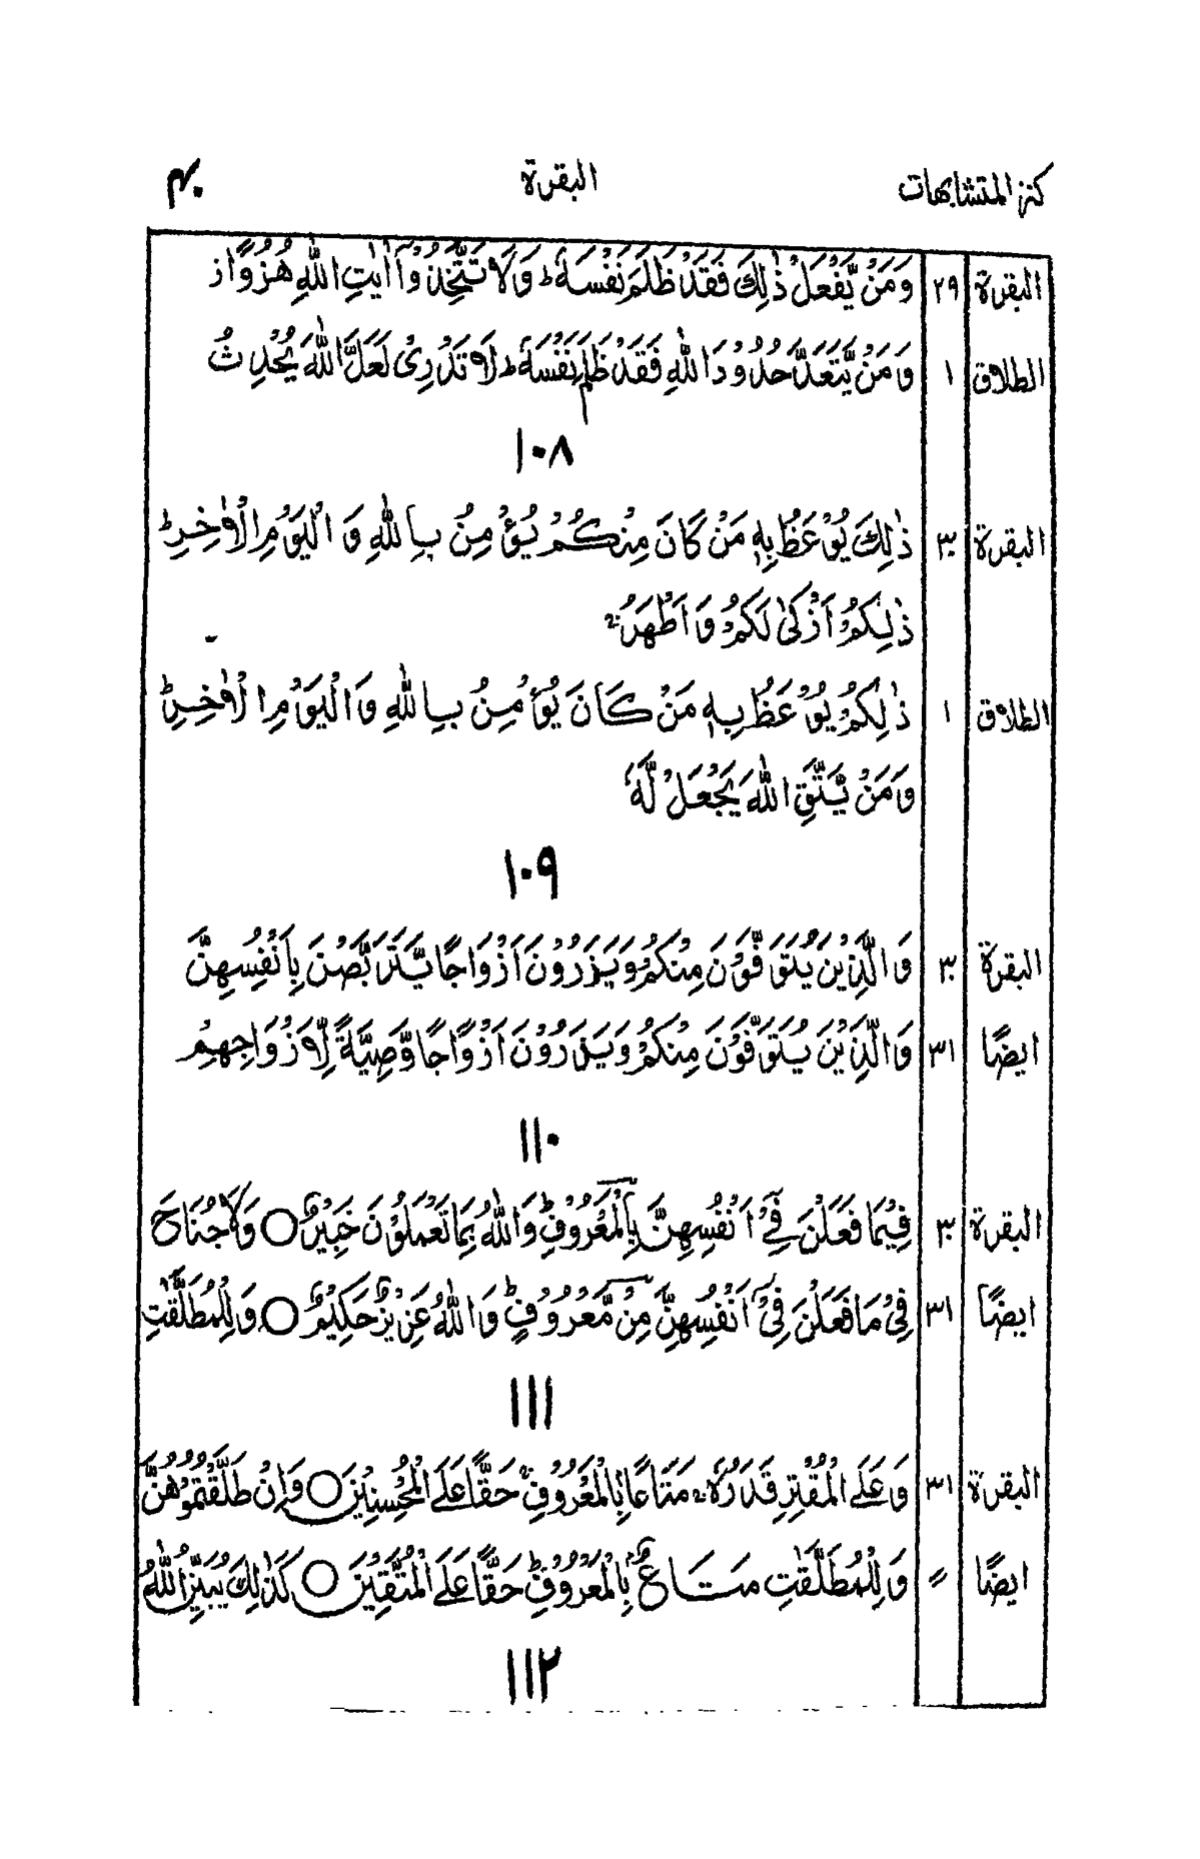 كنز المتشابهات البقرة ۴۰
البقرة ۲۹ وَمَنْ يَّفْعَلْ ذٰلِكَ فَقَدْ ظَلَمَ نَفْسَهٗ ؕ وَلَا تَتَّخِذُوْٓا اٰيٰتِ اللّٰهِ هُزُوًا ز
الطلاق ۱ وَمَنْ يَّتَعَدَّ حُدُوْدَ اللّٰهِ فَقَدْ ظَلَمَ نَفْسَهٗ ؕ لَا تَدْرِىْ لَعَلَّ اللّٰهَ يُحْدِثُ
۱۰۸
البقرة ۳۰ ذٰلِكَ يُوْعَظُ بِهٖ مَنْ كَانَ مِنْكُمْ يُؤْمِنُ بِاللّٰهِ وَ الْيَوْمِ الْاٰخِرِ ؕ
ذٰلِكُمْ اَزْكٰى لَكُمْ وَ اَطْهَرُ ؕ
الطلاق ۱ ذٰلِكُمْ يُوْعَظُ بِهٖ مَنْ كَانَ يُؤْمِنُ بِاللّٰهِ وَالْيَوْمِ الْاٰخِرِ ؕ
وَمَنْ يَّتَّقِ اللّٰهَ يَجْعَلْ لَّهٗ
۱۰۹
البقرة ۳۰ وَالَّذِيْنَ يُتَوَفَّوْنَ مِنْكُمْ وَيَذَرُوْنَ اَزْوَاجًا يَّتَرَبَّصْنَ بِاَنْفُسِهِنَّ
ايضًا ۳۱ وَالَّذِيْنَ يُتَوَفَّوْنَ مِنْكُمْ وَيَذَرُوْنَ اَزْوَاجًا وَّصِيَّةً لِّاَزْوَاجِهِمْ
۱۱۰
البقرة ۳۰ فِيْمَا فَعَلْنَ فِىْٓ اَنْفُسِهِنَّ بِالْمَعْرُوْفِ ؕ وَاللّٰهُ بِمَا تَعْمَلُوْنَ خَبِيْرٌ ○ وَلَا جُنَاحَ
ايضًا ۳۱ فِىْ مَا فَعَلْنَ فِىْٓ اَنْفُسِهِنَّ مِنْ مَّعْرُوْفٍ ؕ وَاللّٰهُ عَزِيْزٌ حَكِيْمٌ ○ وَلِلْمُطَلَّقٰتِ
۱۱۱
البقرة ۳۱ وَعَلَى الْمُقْتِرِ قَدَرُهٗ ۚ مَتَاعًا بِالْمَعْرُوْفِ ۚ حَقًّا عَلَى الْمُحْسِنِيْنَ ○ وَاِنْ طَلَّقْتُمُوْهُنَّ
ايضًا 〃 وَلِلْمُطَلَّقٰتِ مَتَاعٌ بِالْمَعْرُوْفِ ؕ حَقًّا عَلَى الْمُتَّقِيْنَ ○ كَذٰلِكَ يُبَيِّنُ اللّٰهُ
۱۱۲